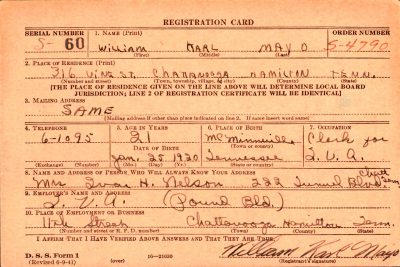 REGISTRATION CARD
SERIAL NUMBER 1. NAME (Print) ORDER NUMBER
S- 60 William Karl MAYO S-4790
(First) (Middle) (Last)
2. PLACE OF RESIDENCE (Print)
316 Vine ST. Chattanooga Hamilton Tenn.
(Number and street) (Town, township, village, or city) (County) (State)
[THE PLACE OF RESIDENCE GIVEN ON THE LINE ABOVE WILL DETERMINE LOCAL BOARD
JURISDICTION; LINE 2 OF REGISTRATION CERTIFICATE WILL BE IDENTICAL]
3. MAILING ADDRESS
SAME
[Mailing address if other than place indicated on line 2. If same insert word same]
4. TELEPHONE 5. AGE IN YEARS 6. PLACE OF BIRTH 7. OCCUPATION
6-1095 21 McMinnville Clerk for
DATE OF BIRTH (Town or county)
Jan. 25 1920 Tennessee T.V.A.
(Exchange) (Number) (Mo.) (Day) (Yr.) (State or country)
8. NAME AND ADDRESS OF PERSON WHO WILL ALWAYS KNOW YOUR ADDRESS Chatt
Mrs H. Nelson 222 Tunnel Blvd Tenn
9. EMPLOYER'S NAME AND ADDRESS
T.V.A. (Pound Bld.)
10. PLACE OF EMPLOYMENT OR BUSINESS
11th Street Chattanooga Hamilton Tenn.
(Number and street or R. F. D. number) (Town) (County) (State)
I AFFIRM THAT I HAVE VERIFIED ABOVE ANSWERS AND THAT THEY ARE TRUE.
D. S. S. Form 1 William Karl Mayo
(Revised 6-9-41) (over) 16-21630